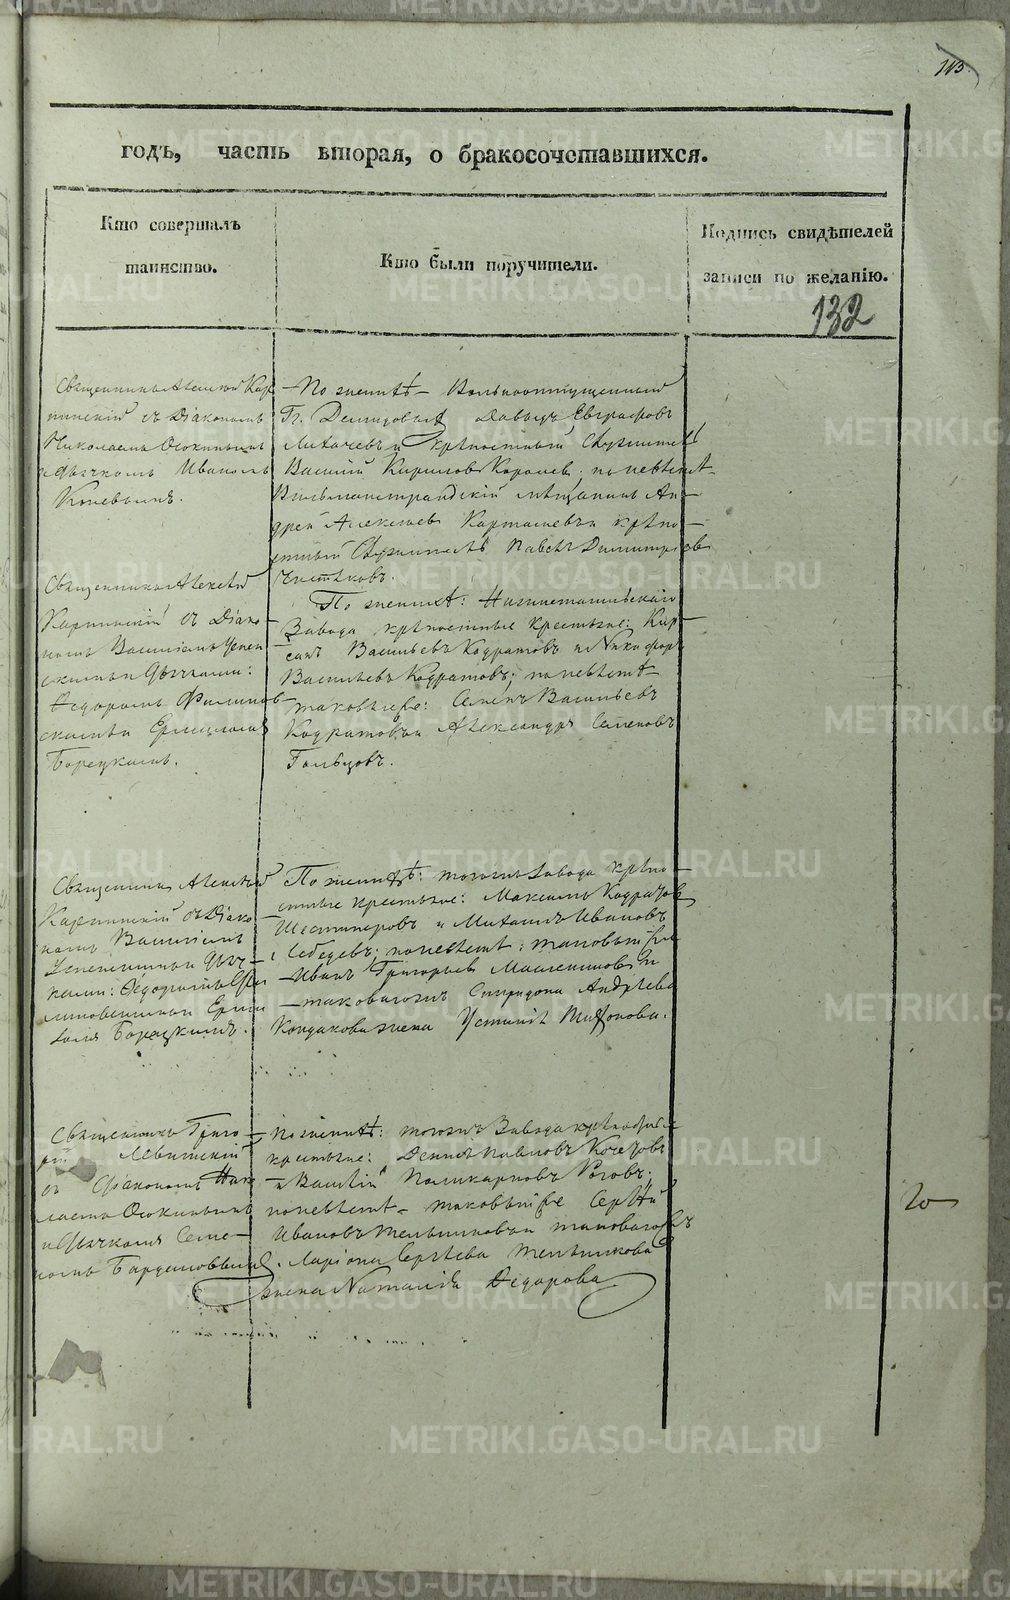 113.
годъ, часть вторая, о бракосочетавшихся.
Кто совершалъ
таинство.
Кто были поручители.
Подпись свидѣтелей
записи по желанію.
132
Священникъ Алексѣй Кар
пинскій съ Діакономъ
Николаемъ Осокинымъ
и дьячкомъ Иваномъ
Коневымъ.
По женихѣ Вольноотпущенный
Гг. Демидовыхъ Давыдъ Евграфовъ
и крѣпостный Служитель
Василій Кириловъ Королевъ; по невѣстѣ
мѣщанинъ Ан
дрей Алексѣевъ Карташевъ и крѣпо
стный Служитель Павелъ Димитріевъ
Чистяковъ.
Священникъ Алексѣй
Карпинскій съ Діако
номъ Василіемъ Успен
скимъ и Дьячками:
Ѳедоромъ Филинов
скимъ и Ермолаемъ
Борецкимъ.
По женихѣ: Нижнетагильскаго
Завода крѣпостные крестьяне: Кир
санъ Васильевъ Кодратовъ и Никифоръ
Васильевъ Кодратовъ; по невѣстѣ
таковые же: Семенъ Васильевъ
Кодратовъ и Александръ Семеновъ
Гольцовъ.
Священникъ Алексѣй
Карпинскій съ Діако
номъ Василіемъ
Успенскимъ и Дьяч
ками: Ѳедоромъ Фили
новскимъ и Ермо
лаемъ Борецкимъ.
По женихѣ: тогожъ Завода крѣпо
стные крестьяне: Максимъ Кодратовъ
Шестиперовъ и Михаилъ Ивановъ
Лебедевъ; по невѣстѣ: таковый же
Иванъ Григорьевъ и
таковагожъ Спиридона Андрѣева
Кондакова жена Устинія Тифонова.
Священникъ Григо
рій Левитскій
съ Діакономъ Нико
лаемъ Осокинымъ
и Дьячкомъ Семе
номъ
По женихѣ: тогожъ Завода крѣпостные
крестьяне: Денисъ Павловъ Кочетовъ
и Василій Поликарповъ Роговъ;
по невѣстѣ таковый же Сергѣй
Ивановъ Мельниковъ и таковагожъ
Ларіона Сергѣева Мельникова
жена Наталія Ѳедорова.
METRIKI.GASO-URAL.RU